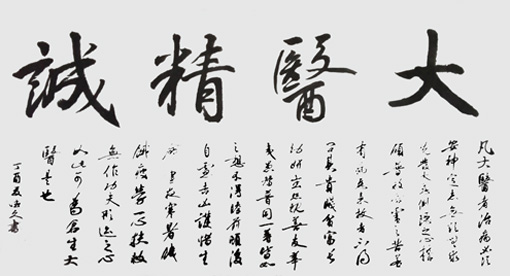 大醫精誠
凡大醫者治病必須
安神定志無欲無求
先發大慈惻隱之心誓
願普救含靈之苦若
有疾厄來求救者不得
問其貴賤貧富長
幼妍蚩怨親善友華
夷愚智普同一等皆如
之想不得瞻前顧後
自慮吉凶護惜生
晝夜寒暑飢
渴疲勞一心赴救
無作功夫形迹之心
如此可為蒼生大
醫是也
丁酉夏 書